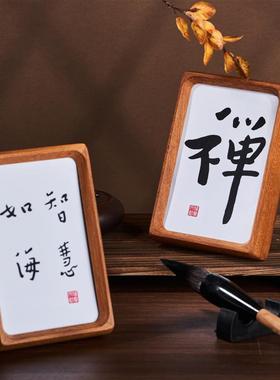 智慧
如海
禅